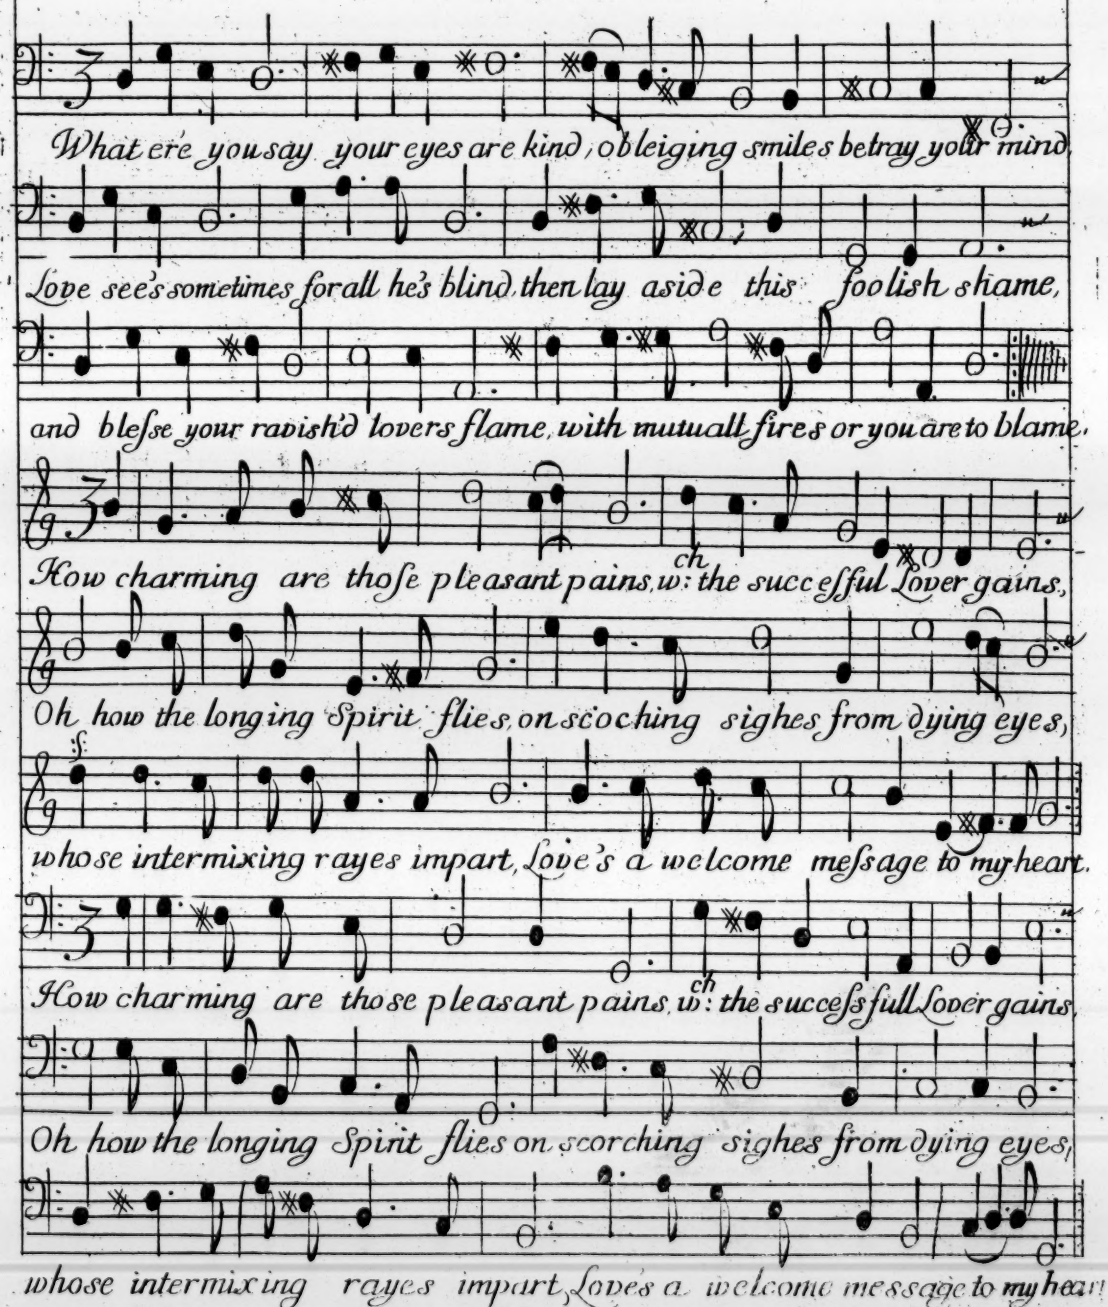 What ere you say your eyes are kind, obleiging smiles betray your mind,
Love see's sometimes for all he's blind, then lay aside this foolish shame,
and bleſse your ravish'd lovers flame, with mutuall fires or you are to blame.
How charming are thoſe pleasant pains, wch: the succeſsful Lover gains,
Oh how the longing Spirit flies, on scoching sighes from dying eyes,
:S:
whose intermixing rayes impart, Love's a welcome meſsage to my heart.
How charming are those pleasant pains, wch: the succeſsfull Lover gains,
Oh how the longing Spirit flies on scorching sighes from dying eyes,
whose intermixing rayes impart, Love's a welcome message to my heart